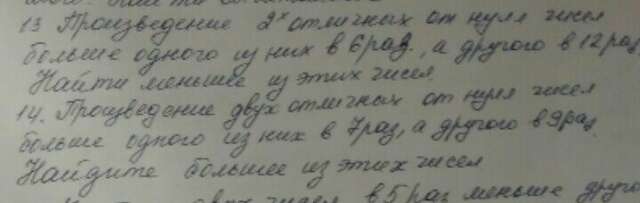 13 Произведение 2х отличных от нуля чисел
больше одного из них в 6 раз, а другого в 12 раз
Найти меньшее из этих чисел.
14. Произведение двух отличных от нуля чисел
больше одного из них в 7 раз, а другого в 9 раз.
Найдите большее из этих чисел
чисел в 5 раз меньше друго